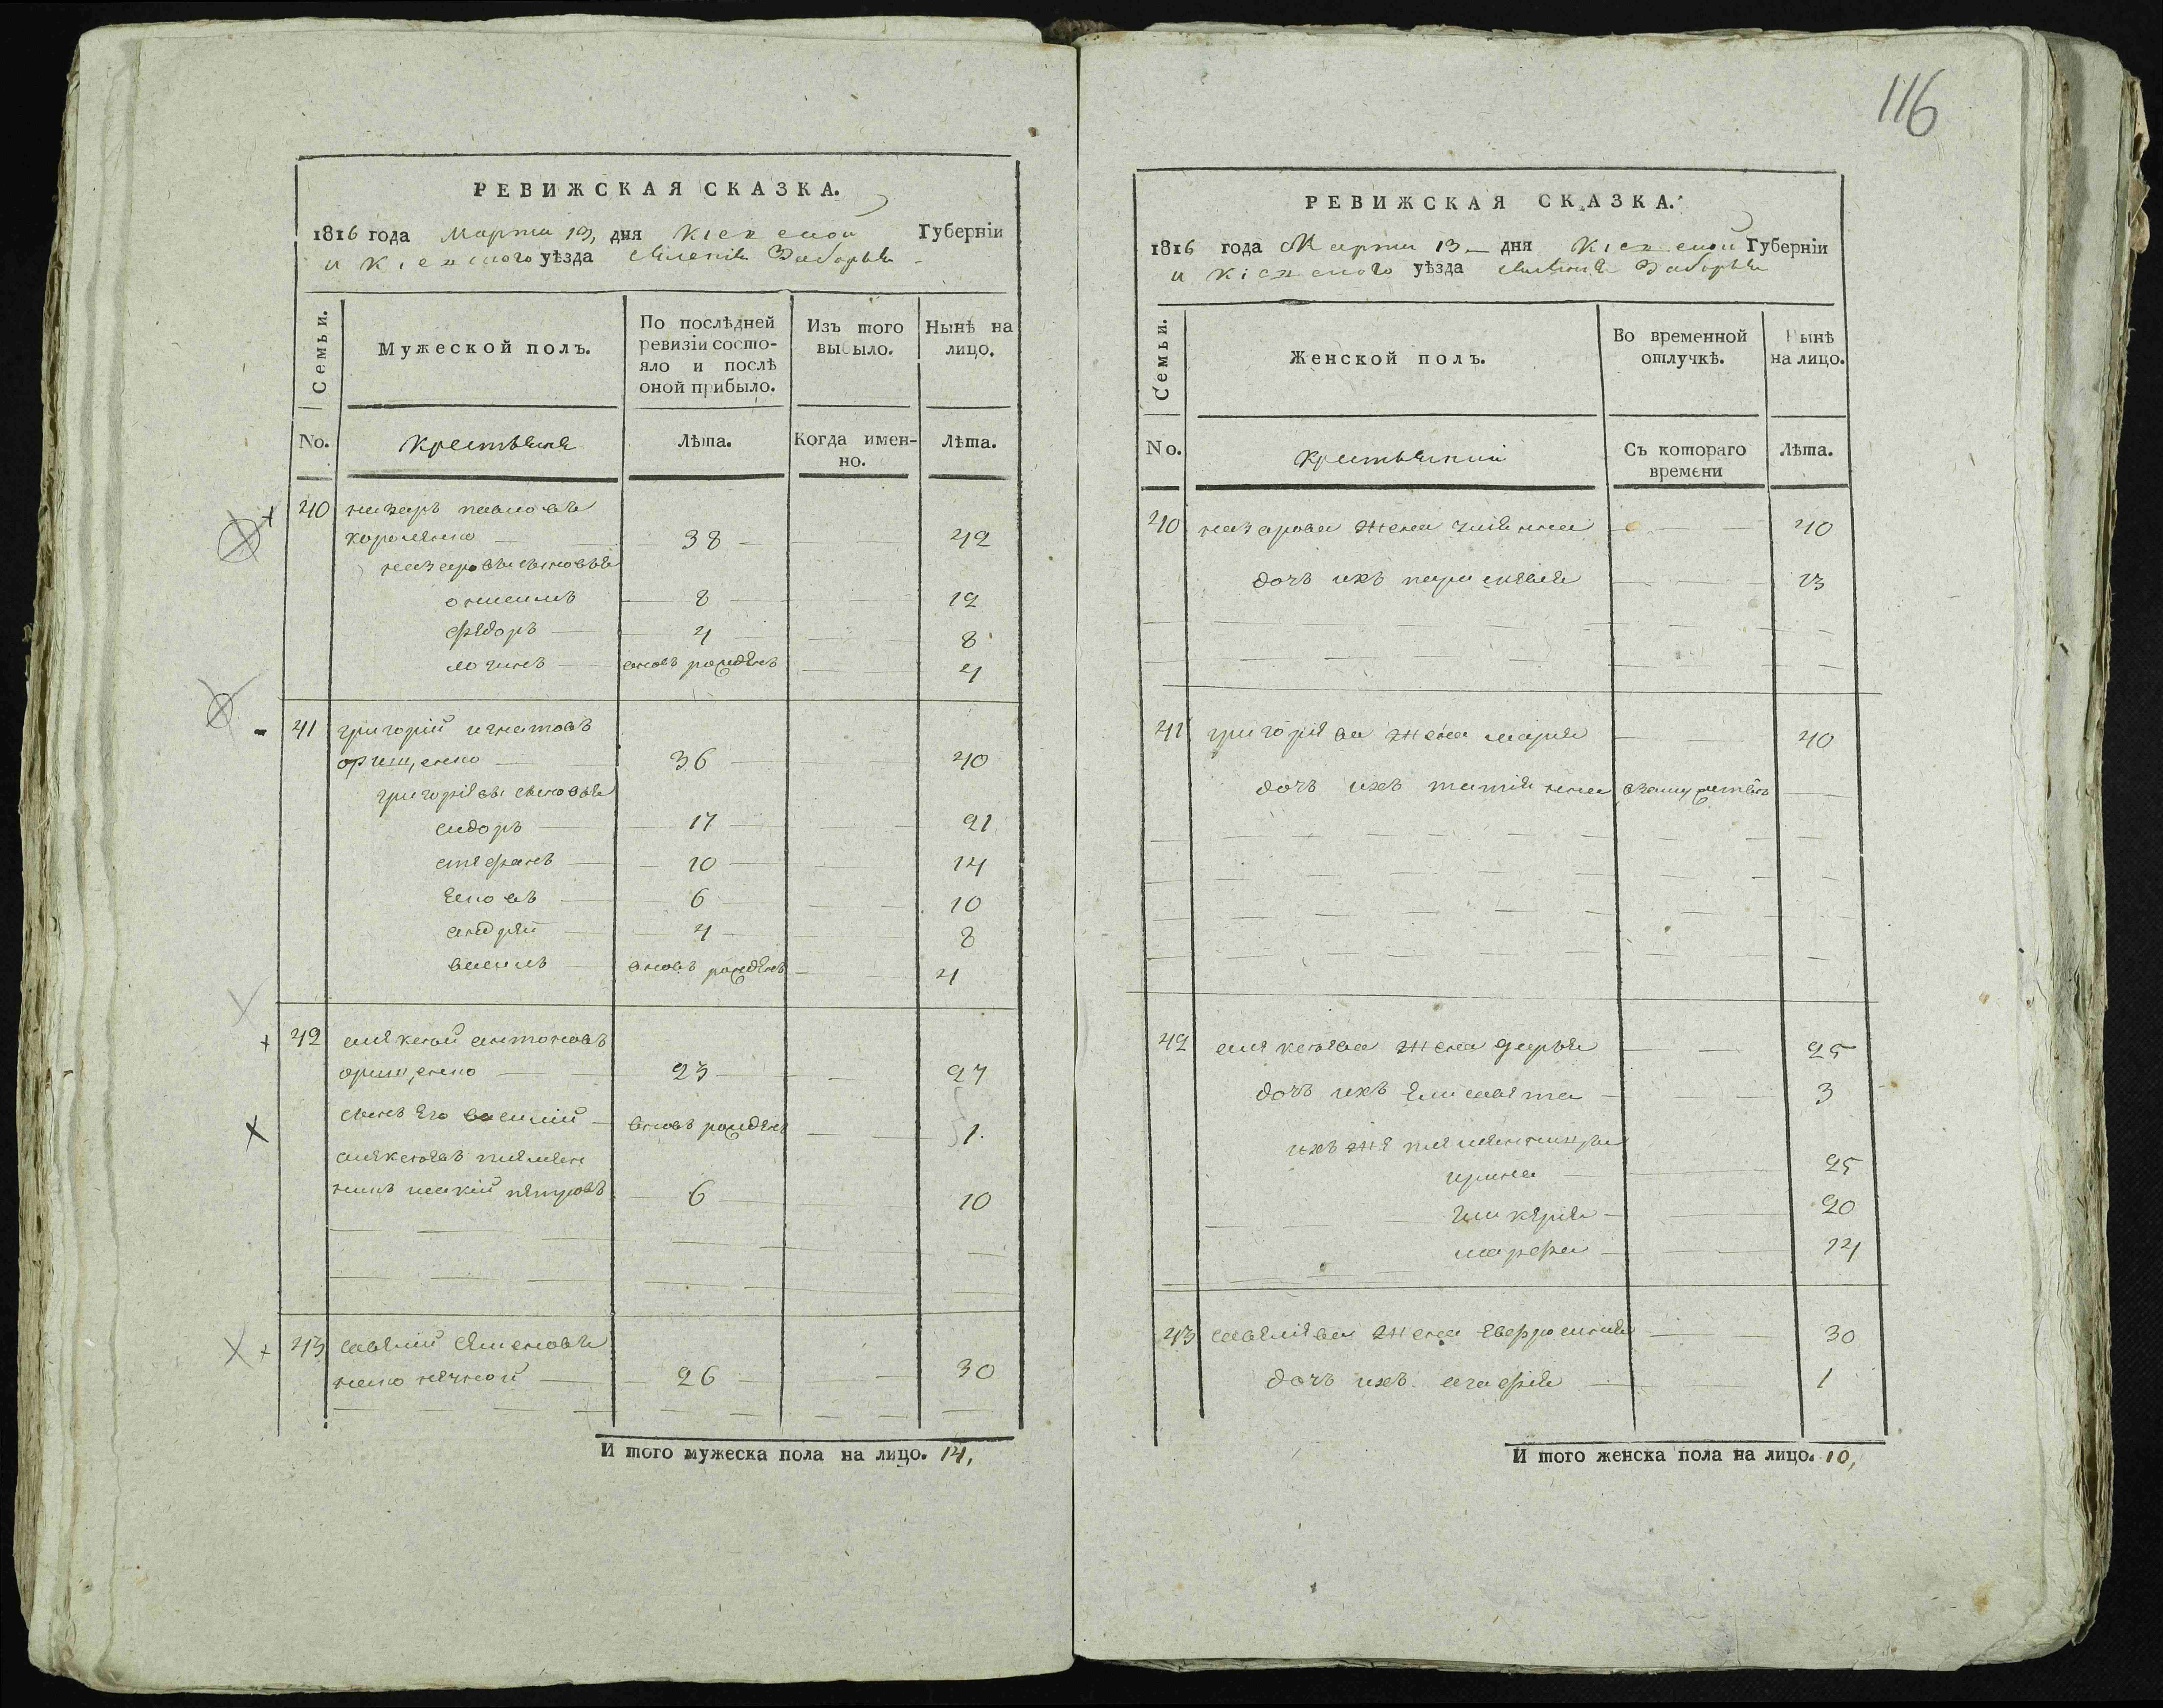 116
РЕВИЖСКАЯ СКАЗКА.
1816 года Марта 13, дня Кіевской Губерніи
и Кіевского уѣзда селенія Заборья
Семьи.
Мужеской полъ.
По послѣдней ревизіи состо-
яло и послѣ
оной прибыло.
Изъ того
выбыло.
Нынѣ на
лицо.
No.
Крестьяне
Лѣта.
Когда имен-
но.
Лѣта.
40 назаръ павловъ
короленко 38 42
назаровы сыновья
онисимъ 8 12
федоръ 4 8
логинъ вновь рожденъ 4
41 григорій игнатовъ
орищенко 36 40
григоріевы сыновья
сидоръ 17 21
стефанъ 10 14
яковъ 6 10
андрей 4 8
василь вновь рожденъ 4
42 алексей антоновъ
орищенко 23 27
сынъ его василий вновь рожденъ 1.
алексеевъ племян
никъ петровъ 6 10
43 савелий
26 30
И того мужеска пола на лицо. 14,
РЕВИЖСКАЯ СКАЗКА.
1816 года Марта 13 дня Кіевской Губерніи
и Кіевского уѣзда селенія Заборья
Семьи.
Женской полъ.
Во временной
отлучкѣ.
Нынѣ
на лицо.
No.
Крестьянки
Съ котораго
времени
Лѣта.
40 назарова жена улианна 40
дочь ихъ параскевия 13
41 григоріева жена марія 40
дочь ихъ татіянна взамужестве
42 алексеева жена дарья 25
дочь ихъ елисавета 3
ихъ же племянницы
ирина 25
гликерия 20
марфа 14
43 савелиева жена евфросиния 30
дочь ихъ агафія 1
И того женска пола на лицо. 10,